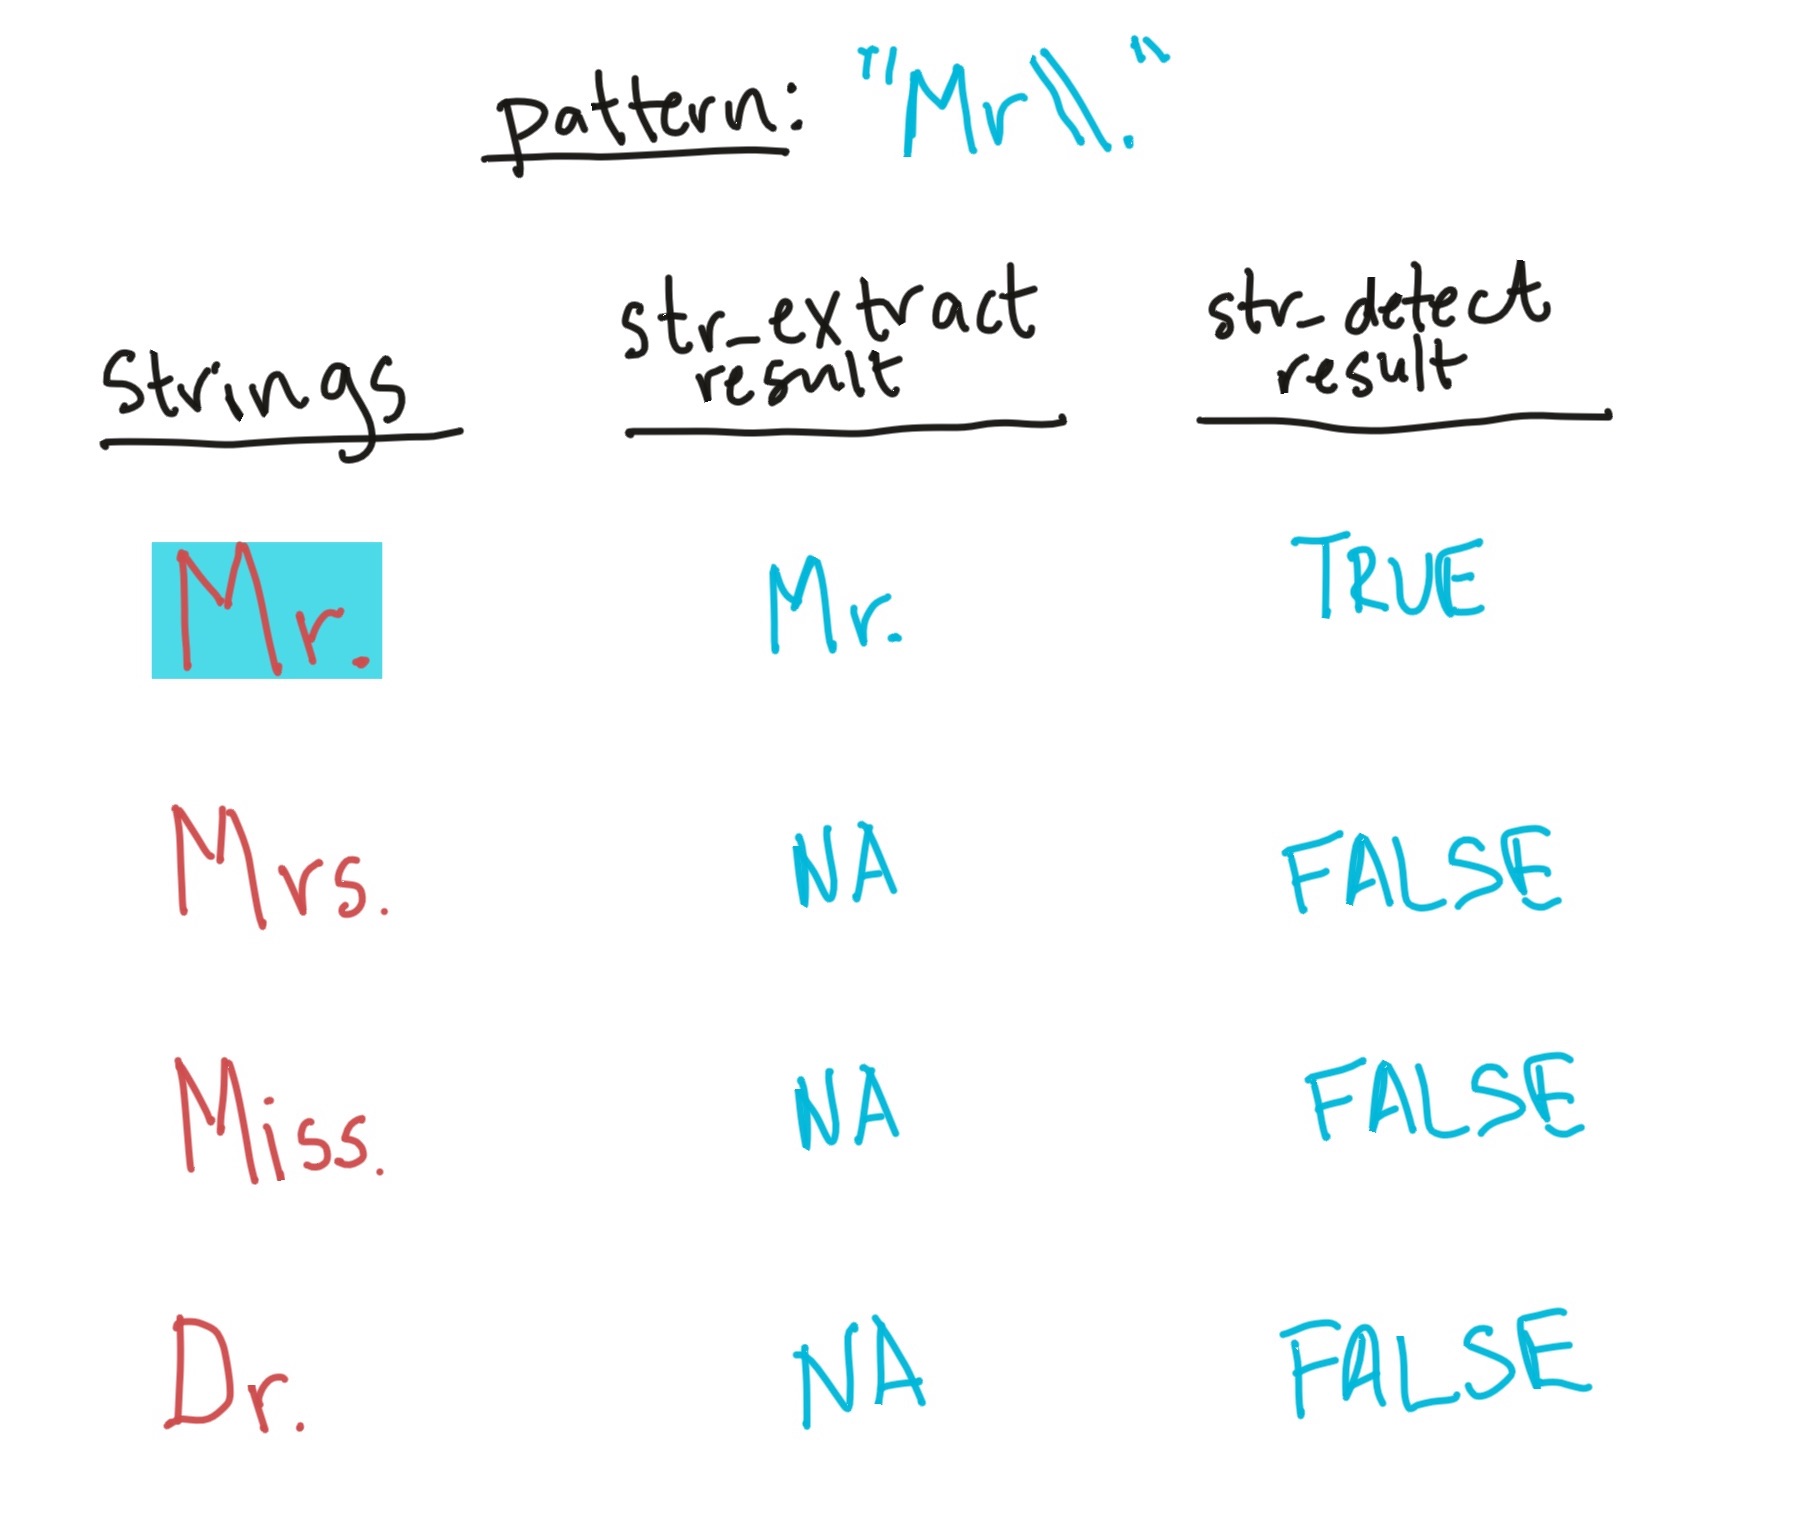 pattern: "Mr\\."
strings str_extract result str_detect result
Mr. Mr. TRUE
Mrs. NA FALSE
Miss. NA FALSE
Dr. NA FALSE